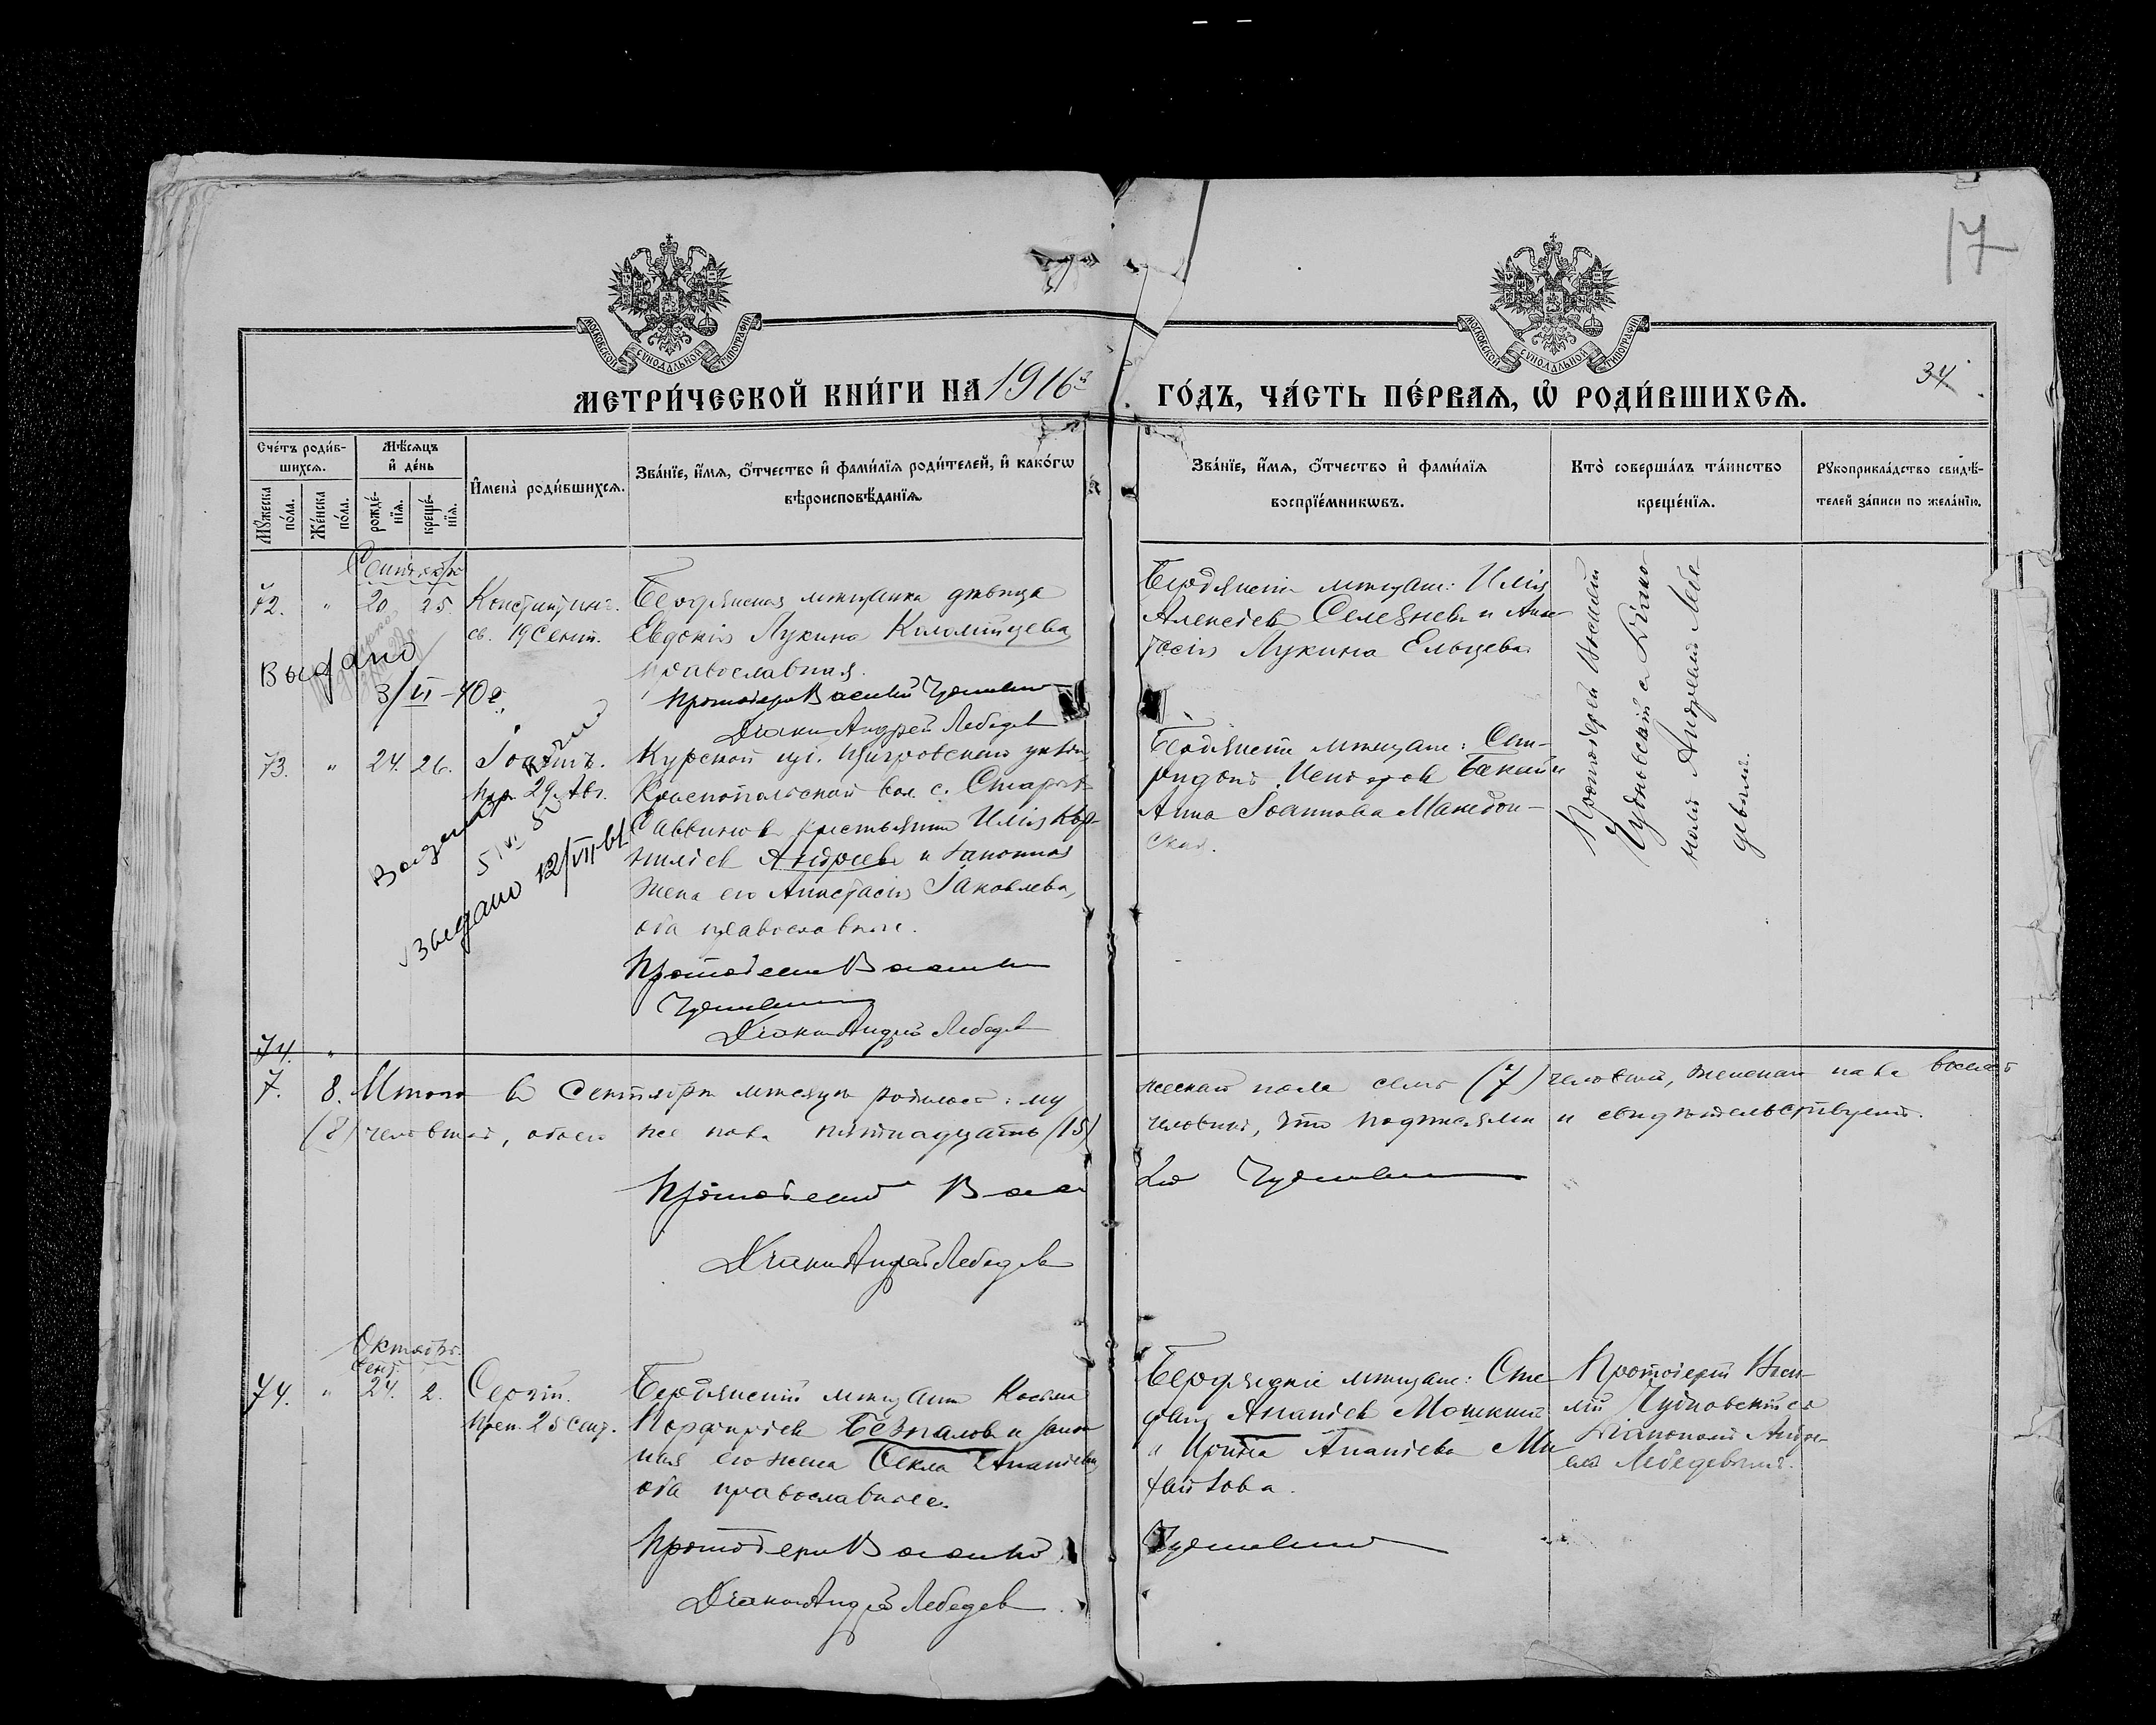 17
МОСКОВСКОЙ СѴНОДАЛЬНОЙ ТИПОГРАФІИ
МОСКОВСКОЙ СѴНОДАЛЬНОЙ ТИПОГРАФІИ
34
МЕТРИ́ЧЕСКОЙ КНИ́ГИ НА 1916 ГО́ДЪ, ЧА́СТЬ ПЕ́РВАѦ, Ѽ РОДИ́ВШИХСѦ.
Сче́тъ роди́в-
шихсѧ.
Мꙋ́жеска
по́ла.
Же́нска
по́ла.
Мѣ́сѧцъ
и҆ де́нь
рожде́-
нїѧ.
креще́-
нїѧ.
И҆мена̀ роди́вшихсѧ.
Зва́нїе, и҆́мѧ, ѻ҆́тчество и҆ фами́лїѧ роди́телей, и҆ како́гѡ
вѣроисповѣ́данїѧ.
Зва́нїе, и҆́мѧ, ѻ҆́тчество и҆ фами́лїѧ
воспрїе́мникѡвъ.
Кто̀ соверша́лъ та́инство
креще́нїѧ.
Рꙋкоприкла́дство свидѣ́-
телей за́писи по жела́нїю.
Сентябрь
72. " 20. 25.
Константинъ.
св. 19 Сент.
Бердянская мѣщанка дѣвица
Евдокія Лукина Коломийцева
православная.
Протоіерей Василій Чудновскій
Діаконъ Андрей Лебедев
Бердянскіе мѣщане: Илія
Алексіевъ Селезневъ и Анас-
тасія Лукина Ельцева
Протоіерей Василій
Чудновскій съ діако-
номъ Андреемъ Лебе-
девымъ.
Выдано
3/VI-40г.
73. " 24. 26.
Іоаннъ.
пр. 29 Авг.
Курской губ. Щигровскаго уѣзда,
Краснопольской вол. с. Старо-
Саввина крестьянинъ Илія Кор-
ниліевъ Андреевъ и законная
жена его Анастасія Іаковлева,
оба православные.
Протоіерей Василій
Чудновскій
Діаконъ Андрей Лебедев
Бердянскіе мѣщане: Спи-
ридонъ
Анна Іоаннова Македон-
ская.
Выдано 12/VII-61
74. "
7. 8. Итого въ Сентябрѣ мѣсяцѣ родилось: му
жескаго пола семь (7) человѣкъ, женскаго пола восемь
(8) человѣкъ, обоего же пола пятнадцать (15)
человѣкъ, что подписями и свидѣтельствуемъ.
Протоіерей Василій Чудновскій
Діаконъ Андрей Лебедев
Октябрь.
Сент.
74. " 24. 2.
Сергій.
Преп. 25 Сент.
Бердянскій мѣщанинъ Косма
Порфиріевъ Безпаловъ и закон
ная его жена Ѳекла Ананіева,
оба православные.
Протоіерей Василій Чудновскій
Діаконъ Андрей Лебедев
Бердянскіе мѣщане: Сте-
фанъ Ананіевъ Мошкинъ
и Ирина Ананіева Ми-
хайлова.
Протоіерей Васи-
лій Чудновскій съ
Діакономъ Андре-
емъ Лебедевымъ.